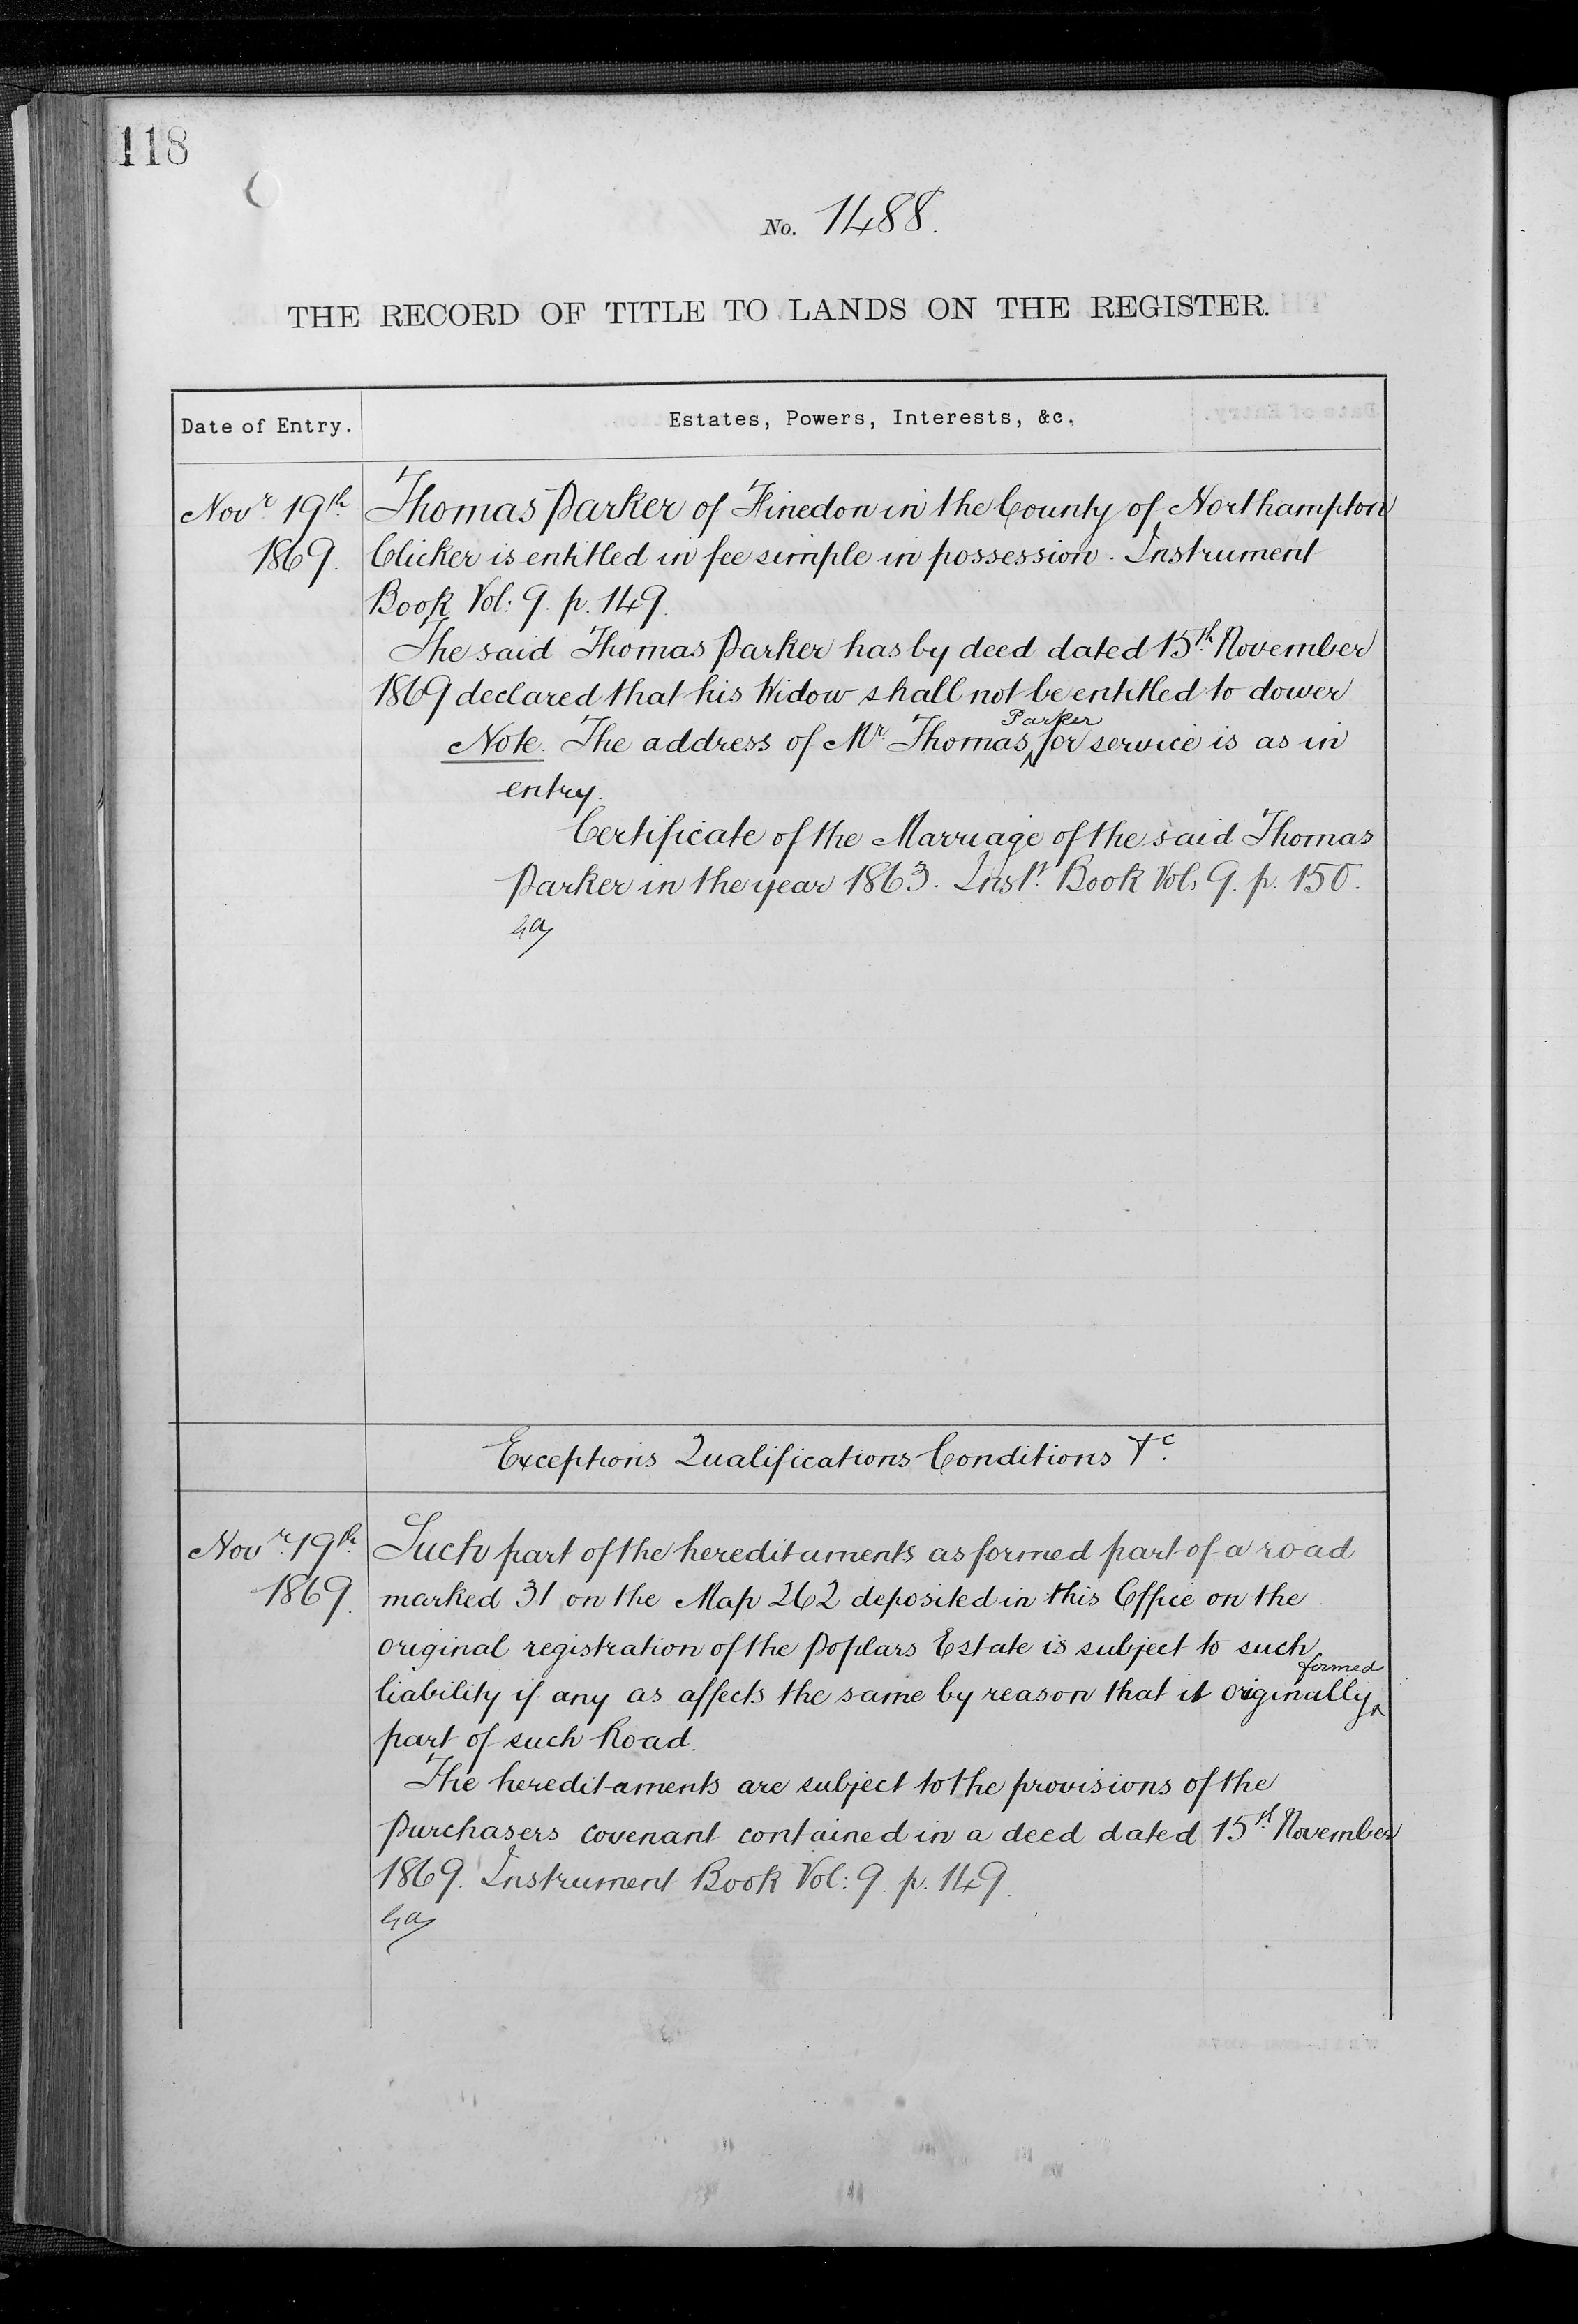 118
No. 1488.
THE RECORD OF TITLE TO LANDS ON THE REGISTER.
Date of Entry.
Estates, Powers, Interests, &c.
Novr 19th
1869.
Thomas Parker of Finedon in the County of Northampton
Clicker is entitled in fee simple in possession. Instrument
Book Vol: 9. p. 149.
The said Thomas Parker has by deed dated 15th November
1869 declared that his Widow shall not be entitled to dower
Note. The address of Mr Thomas Parker for service is as in
entry.
Certificate of the Marriage of the said Thomas
Parker in the year 1863. Inst. Book Vol: 9. p. 150.
Exceptions Qualifications Conditions &c.
Novr 19th
1869.
Such part of the hereditaments as formed part of a road
marked 31 on the Map 262 deposited in this Office on the
original registration of the Poplars Estate is subject to such
liability if any as affects the same by reason that it originally formed
part of such Road.
The hereditaments are subject to the provisions of the
purchasers covenant contained in a deed dated 15th November
1869. Instrument Book Vol: 9. p. 149.